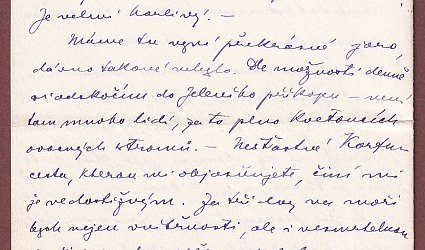 je velmi horlivý! –
Máme tu nyní překrásné jaro,
dávno takové nebylo. Dle možnosti denně
si odskočím do Jeleního příkopu – není
tam mnoho lidí, za to plno kvetoucích
ovocných stromů. – Nešťastné Korfu-
cesta, kterou mi objasňujete, činí mi
je nedostižným. Za tři dny na moři
bych nejen vnitřnosti, ale i nesmrtelnou